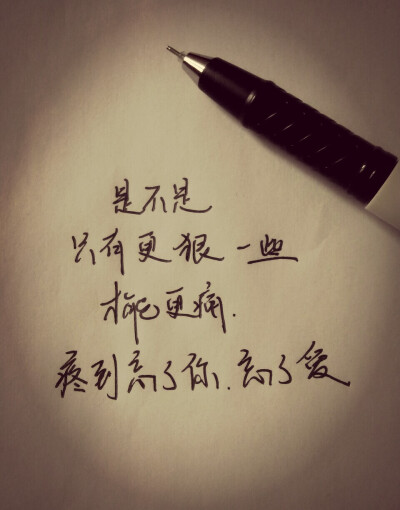 是不是
只有更狠一些
才能更痛.
疼到忘了你.忘了爱